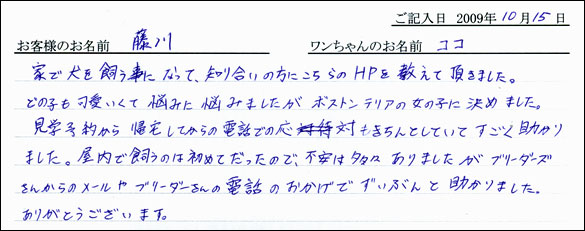 ご記入日 2009年 10月 15日
お客様のお名前 藤川 ワンちゃんのお名前 ココ
家で犬を飼う事になって、知り合いの方にこちらのHPを教えて頂きました。
どの子も可愛いくて悩みに悩みましたがボストンテリアの女の子に決めました。
見学予約から帰宅してからの電話での応対もきちんとしていてすごく助かり
ました。屋内で飼うのは初めてだったので、不安は多々ありましたがブリーダーズ
さんからのメールやブリーダーさんの電話のおかげでずいぶんと助かりました。
ありがとうございます。